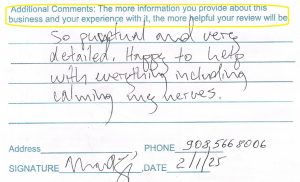 Additional Comments: The more information you provide about this
business and your experience with it, the more helpful your review will be.
So punctual and very
detailed. Happy to help
with everything including
calming my nerves.
Address PHONE 908 566 8006
SIGNATURE DATE 2/1/25